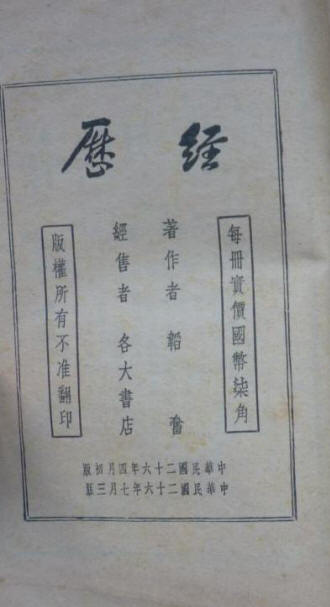 經歷
每冊實價國幣柒角
著作者 韜奮
經售者 各大書店
版權所有不准翻印
中華民國二十六年四月初版
中華民國二十六年七月三版